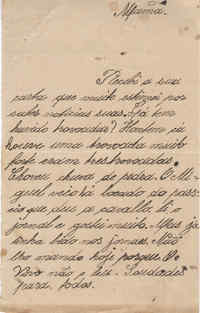 Mamãe.
Recebi a sua
carta que muito estimei por
saber noticias suas. Já tem
havido trovoadas? Hontem já
houve uma trovoada muito
forte eram tres trovoadas.
Choveu chuva de pedra. O Mi-
guel veio lá do pas-
seio que deu a cavallo, li o
jornal e gostei muito. Mas já
tinha lido nos jornaes. Não
lho mando hoje porque O
Vovô não o leu. Saudades
para todos.